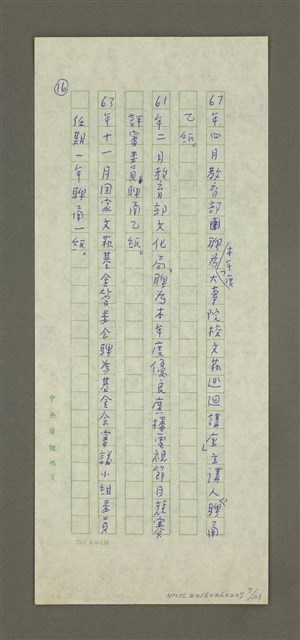 ⑯
67年四月教育部團聘為「本年度大專院校文藝巡迴講座主講人」聘函
乙紙。
61年二月教育部文化局聘為本年度優良廣播電視節目競賽
評審委員聘函乙紙。
63年十一月國家文藝基金管委會聘為基金會審議小組委員
任期一年聘函一紙。
中央日報稿紙
NMTL20160260205 7/21